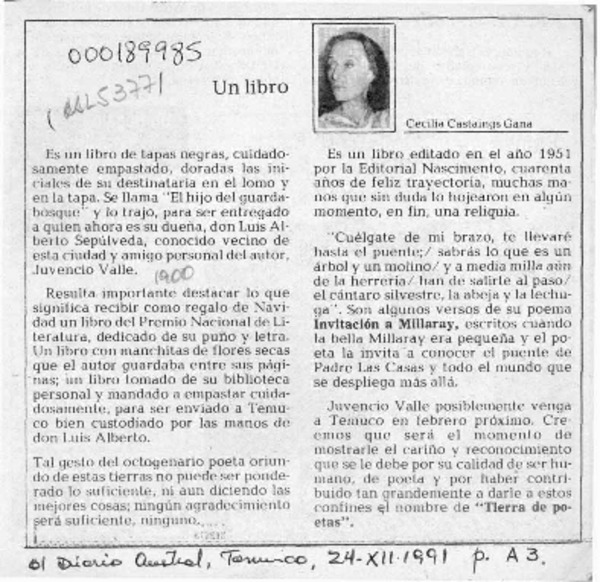 000189985
Un libro
Cecilia Castaings Gana
Es un libro de tapas negras, cuidado-
samente empastado, doradas las ini-
ciales de su destinataria en el lomo y
en la tapa. Se llama "El hijo del guarda-
bosque" y lo trajo, para ser entregado
a quien ahora es su dueña, don Luis Al-
berto Sepúlveda, conocido vecino de
esta ciudad y amigo personal del autor,
Juvencio Valle.
1900
Resulta importante destacar lo que
significa recibir como regalo de Navi-
dad un libro del Premio Nacional de Li-
teratura, dedicado de su puño y letra.
Un libro con manchitas de flores secas
que el autor guardaba entre sus pági-
nas; un libro tomado de su biblioteca
personal y mandado a empastar cuida-
dosamente, para ser enviado a Temu-
co bien custodiado por las manos de
don Luis Alberto.
Tal gesto del octogenario poeta oriun-
do de estas tierras no puede ser ponde-
rado lo suficiente, ni aun diciendo las
mejores cosas; ningún agradecimiento
será suficiente, ninguno.
Es un libro editado en el año 1951
por la Editorial Nascimento, cuarenta
años de feliz trayectoria, muchas ma-
nos que sin duda lo hojearon en algún
momento, en fin, una reliquia.
"Cuélgate de mi brazo, te llevaré
hasta el puente;/ sabrás lo que es un
árbol y un molino/ y a media milla aún
de la herrería/ han de salirte al paso/
el cántaro silvestre, la abeja y la lechu-
ga". Son algunos versos de su poema
Invitación a Millaray, escritos cuando
la bella Millaray era pequeña y el po-
eta la invita a conocer el puente de
Padre Las Casas y todo el mundo que
se despliega más allá.
Juvencio Valle posiblemente venga
a Temuco en febrero próximo. Cre-
emos que será el momento de
mostrarle el cariño y reconocimiento
que se le debe por su calidad de ser hu-
mano, de poeta y por haber contri-
buido tan grandemente a darle a estos
confines el nombre de "Tierra de po-
etas".
El Diario Austral, Temuco, 24-XII-1991 p. A3.